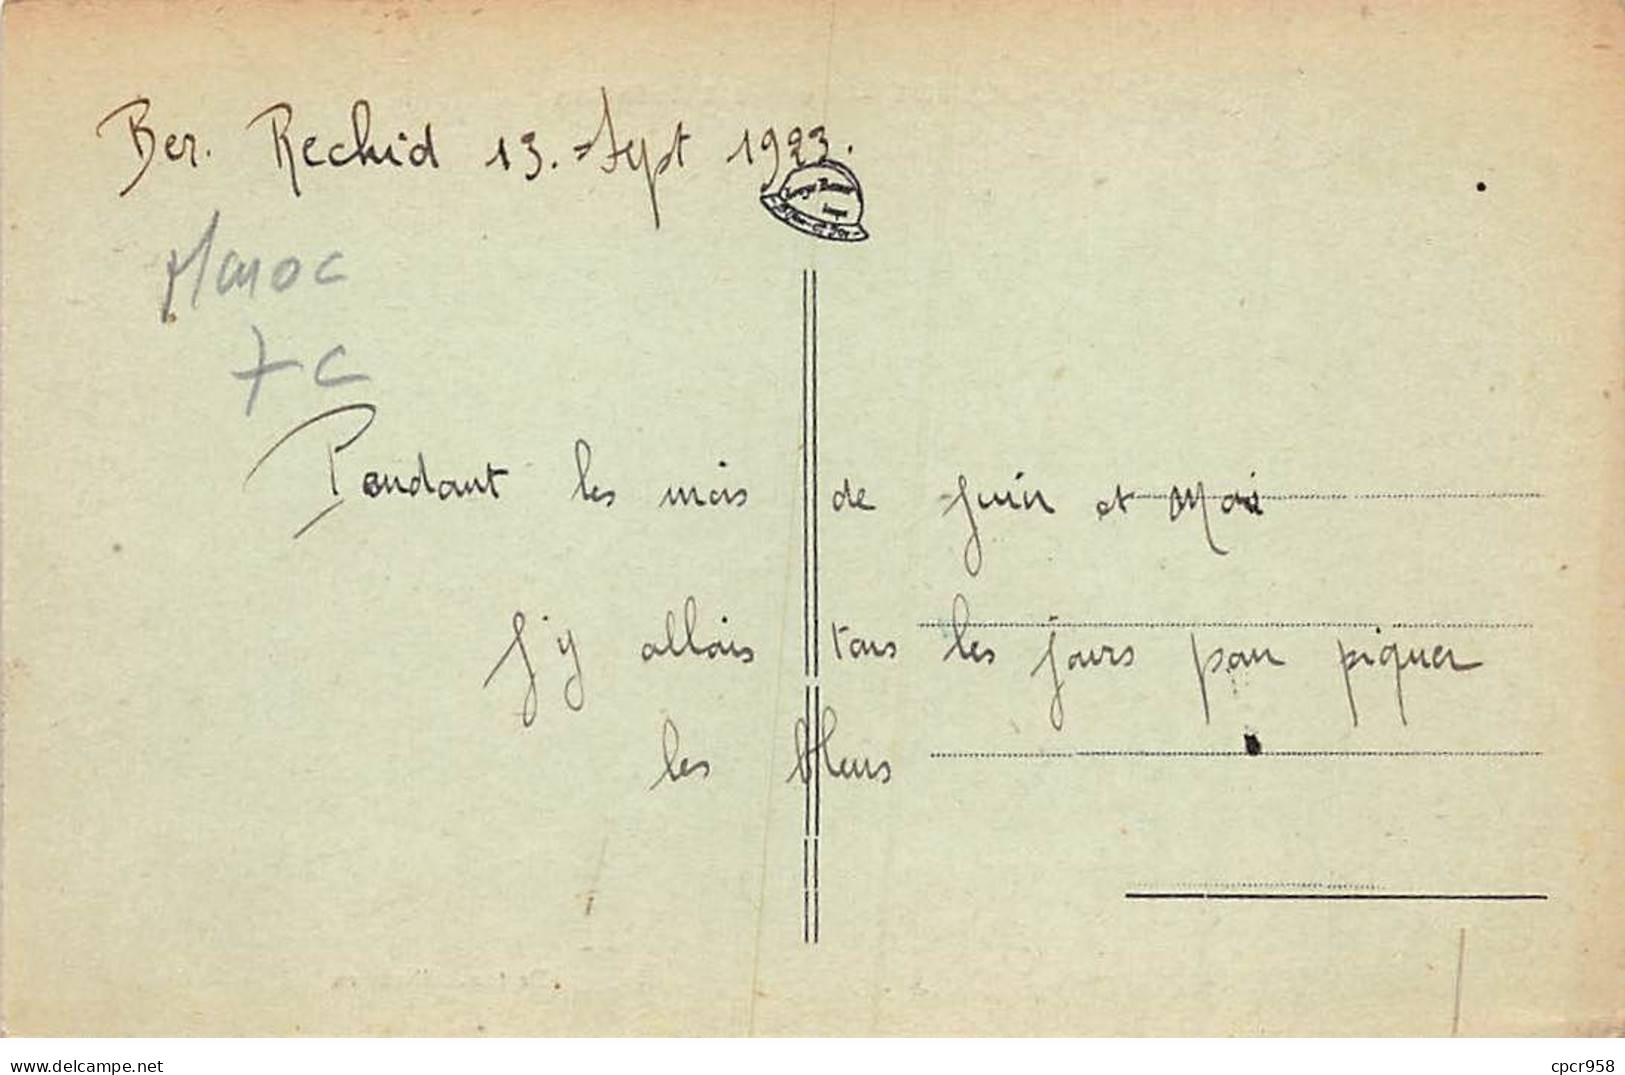 Ber. Rechid 13. Sept 1923.
Maroc
7 c
Pendant les mois de Juin et Mai
J'y allais tous les jours pour piquer
les bleus
www.delcampe.net
cpcr958